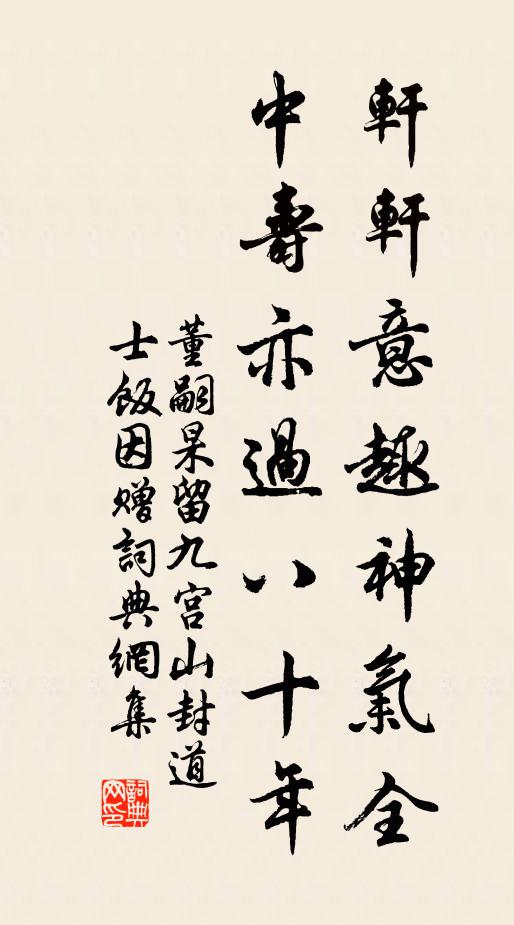 軒軒意趣神氣全
中壽亦過八十年
董嗣杲留九宮山封道
士飯因贈詞典網集
詞典
网印